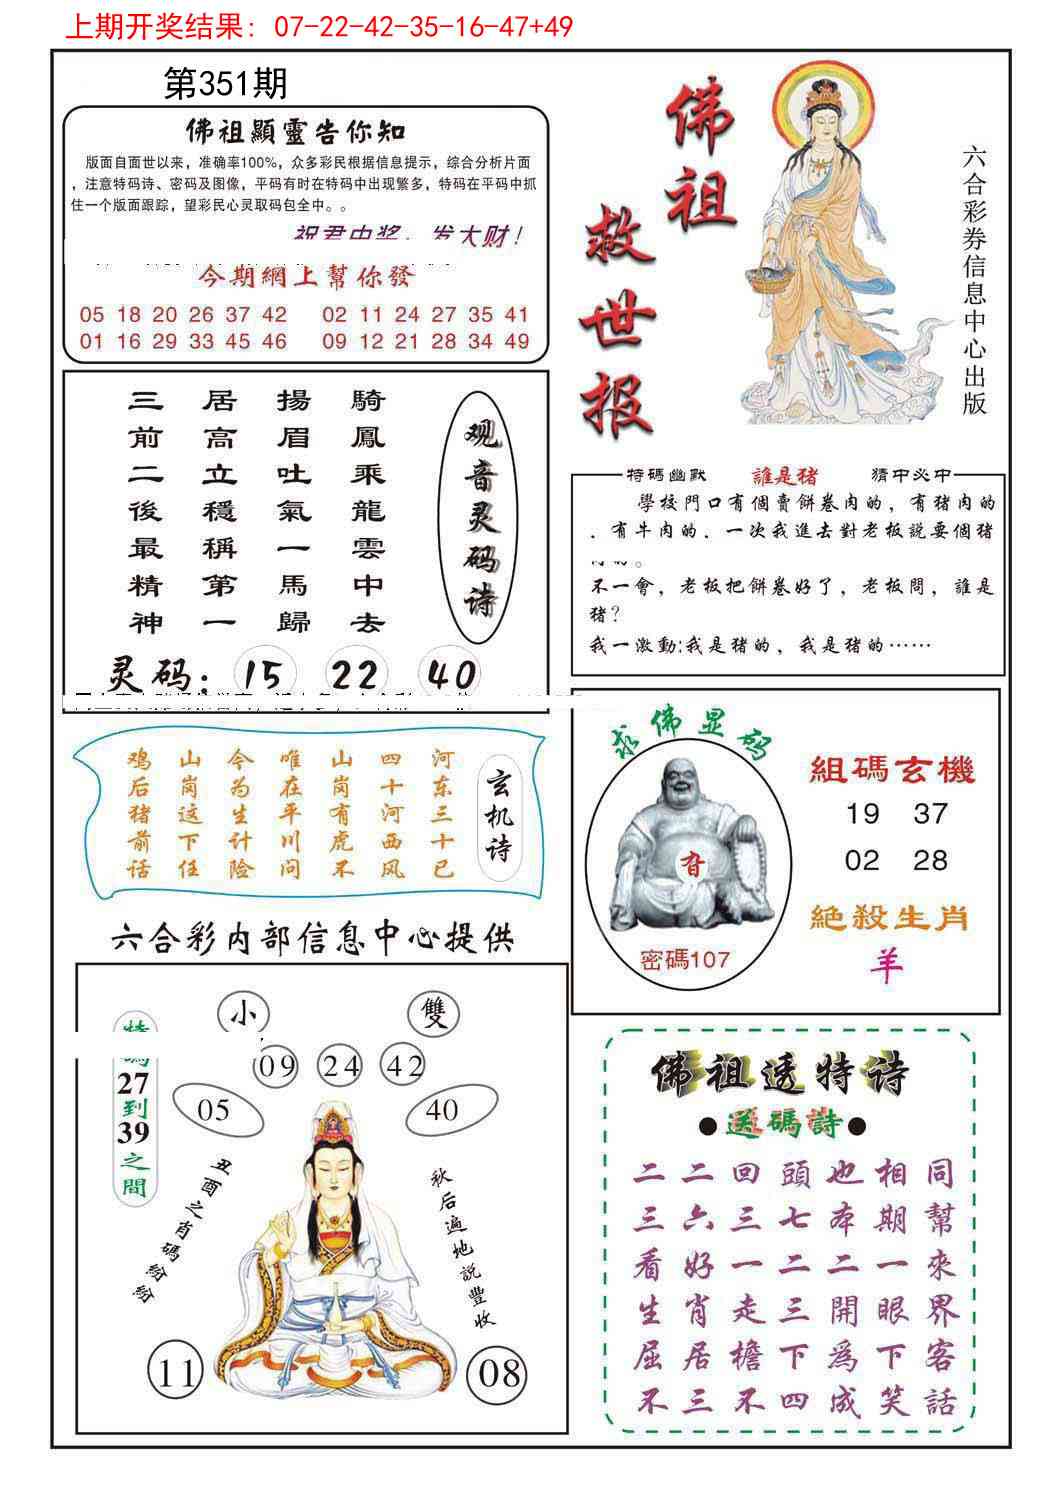 上期开奖结果：07-22-42-35-16-47+49
第351期
佛祖顯靈告你知
版面自面世以来，准确率100%，众多彩民根据信息提示，综合分析片面
，注意特码诗、密码及图像，平码有时在特码中出现繁多，特码在平码中抓
住一个版面跟踪，望彩民心灵取码包全中。。
祝君中奖，发大财！
今期網上幫你發
05 18 20 26 37 42 02 11 24 27 35 41
01 16 29 33 45 46 09 12 21 28 34 49
佛祖
救世报
六合彩券信息中心出版
观音灵码诗
騎鳳乘龍雲中去
揚眉吐氣一馬歸
居高立穩稱第一
三前二後最精神
灵码：15 22 40
特碼幽默 誰是猪 猜中必中
學校門口有個賣餅卷肉的，有猪肉的
．有牛肉的．一次我進去對老板説要個猪
不一會，老板把餅卷好了，老板問，誰是
猪？
我一激動:我是猪的，我是猪的……
玄机诗
河东三十已
四十河西风
山岗有虎不
唯在平川问
今为生计险
山岗这下任
鸡后猪前话
求佛显码
密碼107
組碼玄機
19 37
02 28
絕殺生肖
羊
六合彩内部信息中心提供
小 雙
09 24 42
05 40
特碼27到39之間
丑酉之肖碼紛紛
秋后遍地説豐收
11 08
佛祖透特诗
●送碼詩●
同幫來界客話
相期一眼下笑
也本二開爲成
頭七二三下四
回三一走檐不
二六好肖居三
二三看生屈不